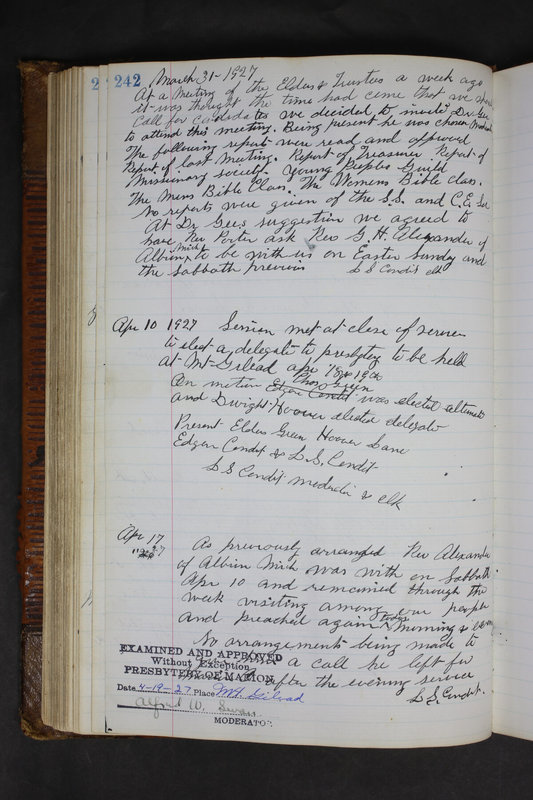 2 242
March 31 - 1927
At a Meeting of the Elders & Trustees a week ago
it was thought the time had come that we should
Call for candidates we decided to invite Dr Gee
to attend this meeting. Being present he was chosen Moderator
The following reports were read and approved
Report of last Meeting. Report of Treasurer. Report of
Missionary society. Young Peoples Guild
The Mens Bible Class. The Womens Bible class.
No reports were given of the S.S. and C.E. Soc
At Dr Gees suggestion we agreed to
have Rev Porter ask Rev G. H. Alexander of
Albion Mich to be with us on Easter Sunday and
the Sabbath previous
L S Condit clk
Apr 10 1927 Session met at close of service
to elect a delegate to presbytery to be held
at Mt Gilead apr 18 & 19th
On motion Edgar Condit Chas Green was elected alternate
and Dwight Hoover elected delegate
Present Elders Green Hoover Lane
Edgar Condit & L.S. Condit
L S Condit moderator & clk
Apr 17
1927
As previously arranged Rev Alexander
of Albion Mich was with on Sabbath
Apr 10 and remained through the
week visiting among our people
and preached again today morning &
No arrangements being made to
a call he left for
after the evening service
L S Condit.
EXAMINED AND APPROVED
Without Exception
PRESBYTERY OF MARION
Date 4-19-27 Place Mt. Gilead
Alfred W. Swan
MODERATOR.